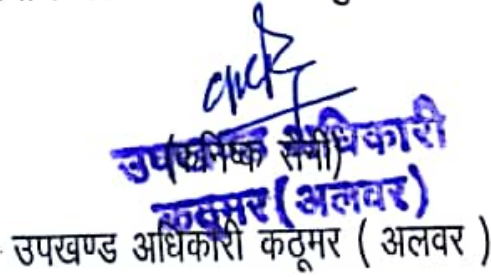 उपखण्ड अधिकारी
(कनिष्क सैनी)
कठूमर (अलवर)
उपखण्ड अधिकारी कठूमर ( अलवर )